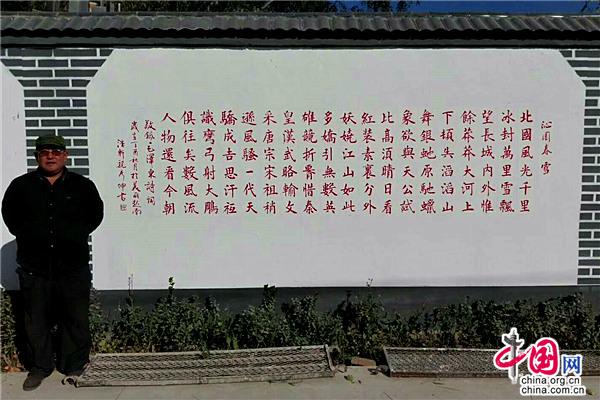 沁園春雪
北國風光千里
冰封萬里雪飄
望長城内外惟
餘莽莽大河上
下頓失滔滔山
舞銀虵原馳蠟
象欲與天公試
比高須晴日看
紅裝素裹分外
妖嬈江山如此
多嬌引無數英
雄競折腰惜秦
皇漢武略輸文
采唐宗宋祖稍
遜風騷一代天
驕成吉思汗祗
識彎弓射大鵰
俱往矣數風流
人物還看今朝
敬錄毛澤東詩詞
中国网
china.org.cn
china.com.cn